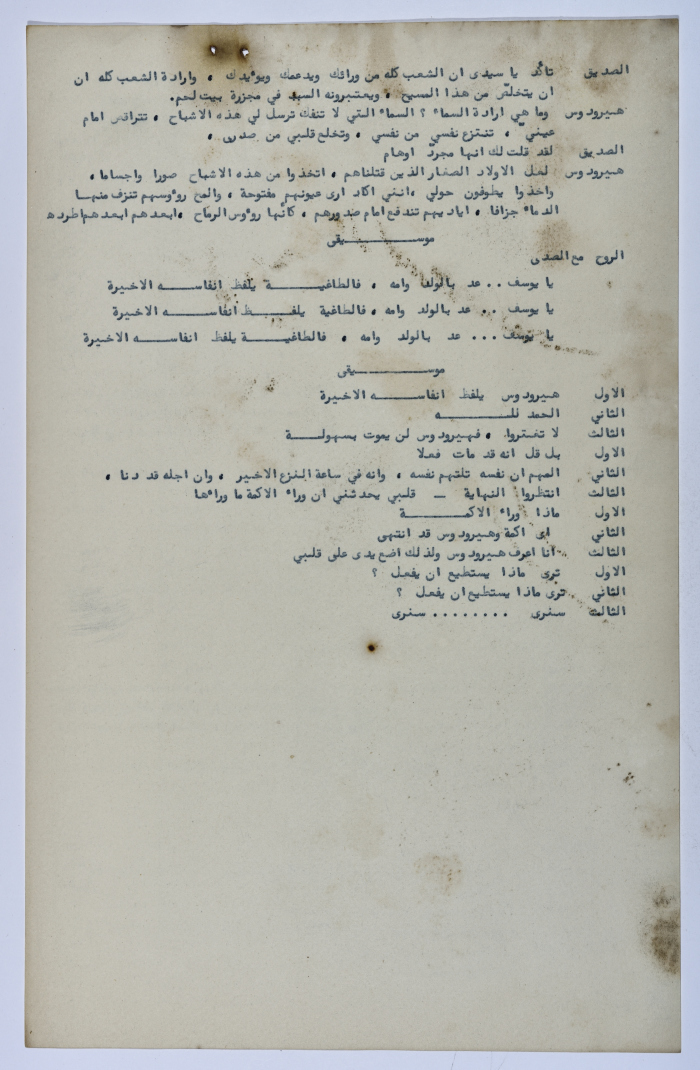 الصديق تأكد يا سيدى ان الشعب كله من ورائك ويدعمك ويؤيدك ، وارادة الشعب كله ان
ان يتخلص من هذا المسيح ، ويعتبرونه السبب في مجزرة بيت لحم.
هيرودوس وما هي ارادة السماء ؟ السماء التي لا تنفك ترسل لي هذه الاشباح ، تتراقص امام
عينيّ ، تنتزع نفسي من نفسي ، وتخلع قلبي من صدرى ،
الصديق لقد قلت لك انها مجردّ اوهام
هيرودوس لعل الاولاد الصغار الذين قتلناهم ، اتخذوا من هذه الاشباح صورا واجساما ،
واخذوا يطوفون حولي ، انني اكاد ارى عيونهم مفتوحة ، والمح رؤوسهم تنزف منهـا
الدماء جزافا ، اياديهم تندفع امام صدورهم ، كأنها رؤوس الرماح ، ابعدهم ابعدهم اطرده
موســـــــيقى
الروح مع الصدى
يا يوسف .. عد بالولد وامه ، فالطاغيـــــة يلفظ انفاســـه الاخيرة
يا يوسف .. عد بالولد وامه ، فالطاغية يلفـــظ انفاســـه الاخيرة
يا يوسف ... عد بالولد وامه ، فالطاغيـــــة يلفظ انفاســـه الاخيرة
موســـــــيقى
الاول هيرودوس يلفظ انفاســـه الاخيرة
الثاني الحمد للـــــــه
الثالث لا تغتروا ، فهيرودوس لن يموت بسهولـــة
الاول بل قل انه قد مات فعلا
الثاني المهم ان نفسه تلتهم نفسه ، وانه في ساعة النزع الاخير ، وان اجله قد دنا ،
الثالث انتظروا النهاية ــ قلبي يحدثني ان وراء الاكمة ما وراءها
الاول ماذا وراء الاكمـــــة
الثاني اى اكمة وهيرودوس قد انتهى
الثالث انا اعرف هيرودوس ولذلك اضع يدى على قلبي
الاول ترى ماذا يستطيع ان يفعل ؟
الثاني ترى ماذا يستطيع ان يفعل ؟
الثالث سنرى ........ سنرى